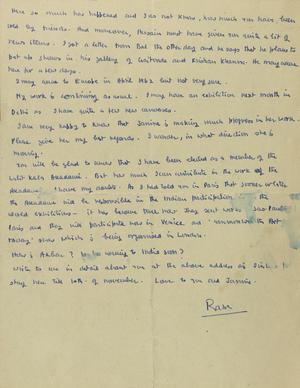 Here so much has happened and I do not know, how much you have been
told by friends. And moreover, Husain must have given you quite a lot of
news items. I got a letter from Bal the other day and he says that he plans to
put up shows in his gallery of Gaitonde and Krishen Khanna. He may come
here for a few days.
I may come to Europe in April 1962 but not very sure.
My work is continuing as usual. I may have an exhibition next month in
Delhi as I have quite a few new canvases.
I am very happy to know that Janine is making much progress in her work.
Please give her my best regards. I wonder, in what direction she is
moving.
You will be glad to know that I have been elected as a member of the
Lalit Kala Akademi. But how much I can contribute in the work of the
Akademi I have my doubts. As I had told you in Paris that sooner or later
the Akademi will be responsible in the Indian Participation in the
world exhibitions - it has become true now they sent works Sao Paulo
Paris and they will participate now in Venice and Commonwealth Art
today show which is being organised in London.
How is Akbar? Is he coming to India soon?
Write to me in detail about you at the above address of Simla. I
stay here till 10th of November. Love to you and Janine.
Ram